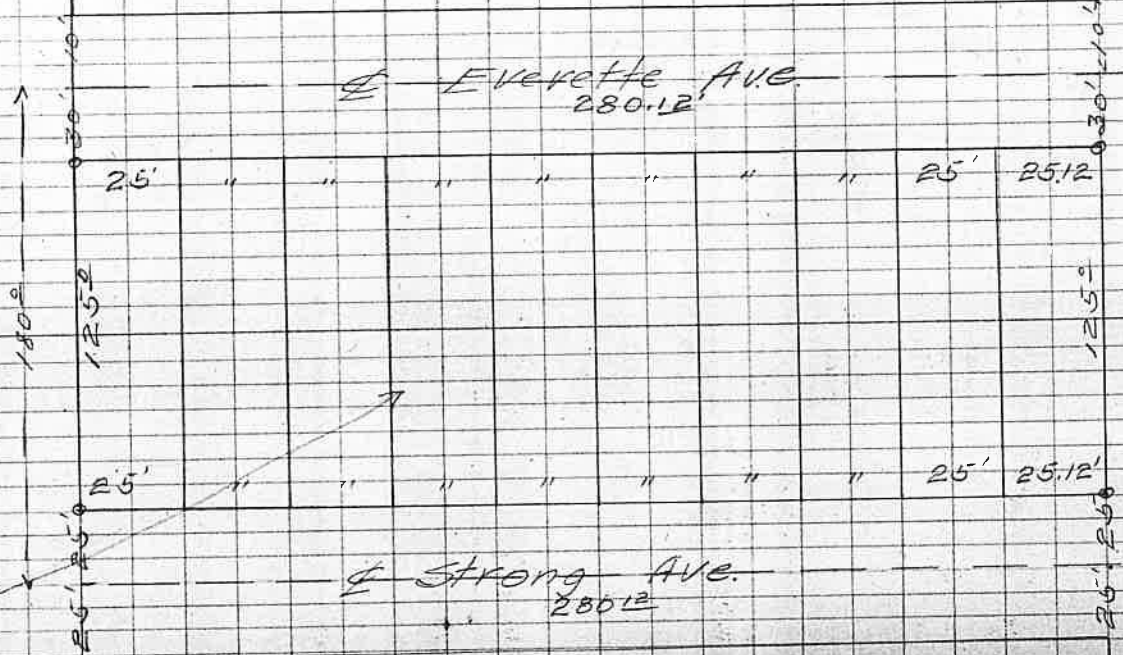 10' 10.4
℄ Everette Ave.
280.12'
30' 30'
25' " " " " " " " 25' 25.12
180.0 125.0 125.0
25' " " " " " " " 25' 25.12'
25' 25.0
℄ Strong Ave.
280.12
25' 25'